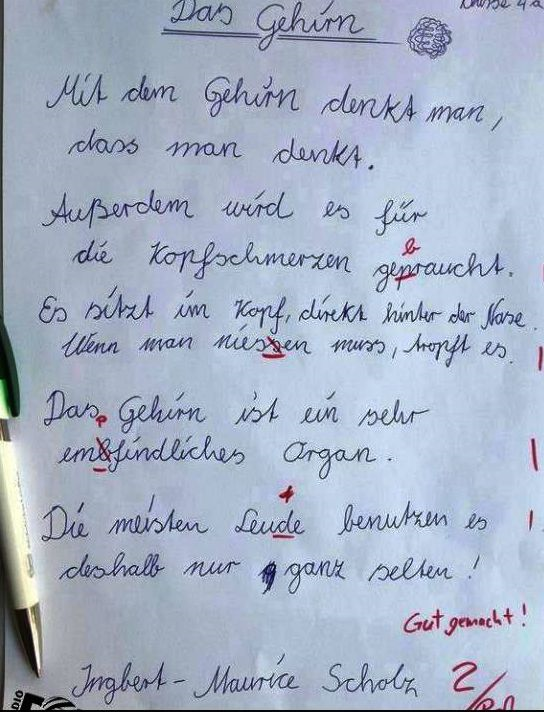 Das Gehirn
Klasse 4a
Mit dem Gehirn denkt man,
dass man denkt.
Außerdem wird es für
b
die Kopfschmerzen gepraucht.
Es sitzt im Kopf, direkt hinter der Nase.
Wenn man niessen muss, tropft es.
Das Gehirn ist ein sehr
p
embfindliches Organ.
t
Die meisten Leude benutzen es
deshalb nur ganz selten!
Gut gemacht!
Ingbert-Maurice Scholz
2